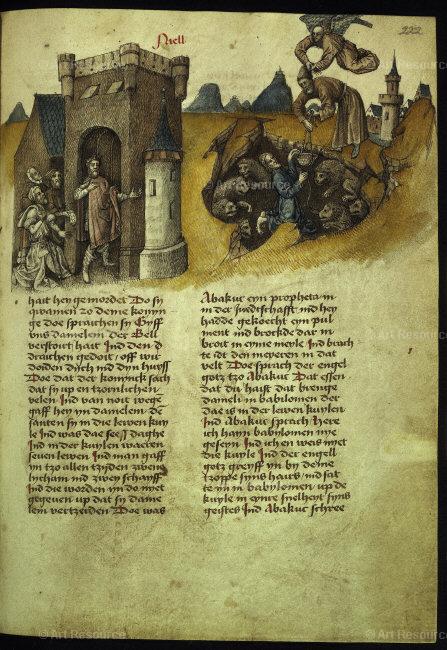 Niell
222
hait hen gemordet Do sy
qwamen zo deme konyn
ge doe sprachen sy Gyff
vns danielem der Bell
verstoirt hait Ind den d
draichen gedoit / off wir
doiden dich ind dyn huyss
Doe dat der konynck sach
dat sy up en tzomlichen
velen Ind van noit wege
gaff hey yn danielem de
santen sy in die lewen kuy
le Ind was dae sess daghe
Ind in der kuylen waeren
seuen lewen Ind man gaff
yn tzo allen tzyden zwene
lycham ind zwey schaiff
Ind die worden yn do nyet
gegeuen up dat sy danie
lem vertzerden Doe was
Abakuc eyn propheta in
in der Juedschafft ind hey
hadde gekoecht eyn pul
ment ind brockde dar in
broit in eyme meyle Ind brach
te idt den meyeren in dat
velt Doe sprach der engel
gotz tzo Abakuc Dat essen
dat du haist dat brenge
danieli in babilonien der
dae is in der lewen kuylen
Ind Abakuc sprach here
ich hain babilonien nye
gesein Ind ich en weis niet
die kuyle Ind der engell
gotz greyff yn by deme
tzoppe syns hairs ind sat
te yn in babylonien up de
kuyle in eynre snelheyt syns
geistes Ind Abakuc schree
© Art Resource